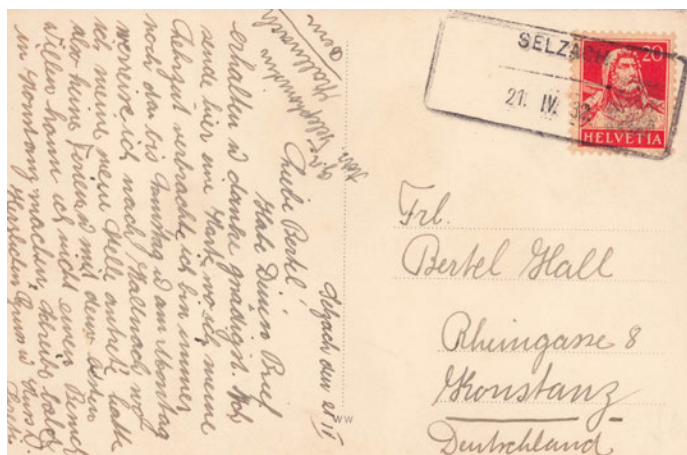 SELZACH
21. IV. 32
20
HELVETIA
Frl.
Bertel Hall
Rheingasse 8
Konstanz
Deutschland
Selzach den 21 IV
Liebi Bertel!
Habe Deinen Brief
erhalten u danke Ich
sende hier eine Karte wo ich meine
verbrachte, ich bin immer
noch da bis Sonntag u am Montag
verreise ich nach Kallnach wo
ich meine neue Stelle antrete, hatte
also keine Ferien u mit dem besten
Willen kann ich nicht einen Besuch
in Konstanz machen, schreibe bald
Herzlichen Gruss u Kuss
WW
Kallnach